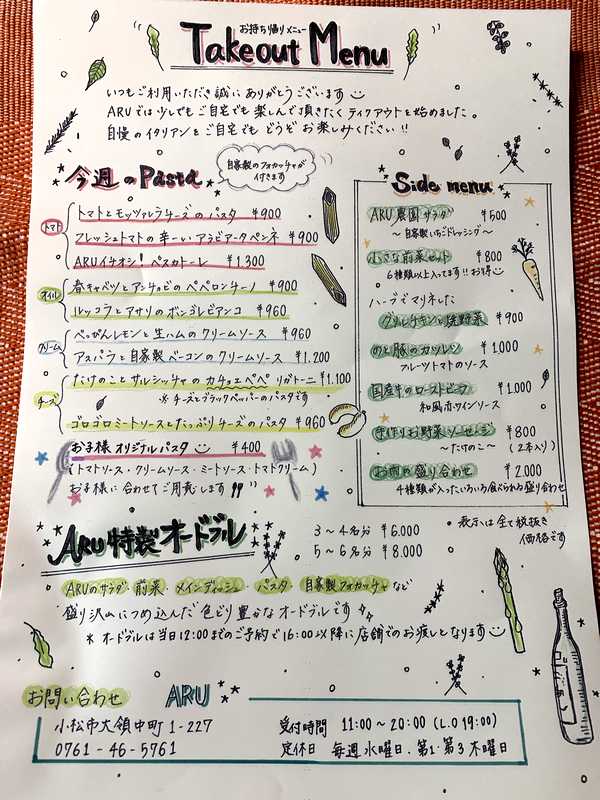 お持ち帰りメニュー
Takeout Menu
いつもご利用いただき誠にありがとうございます
ARUでは少しでもご自宅でも楽しんで頂きたくテイクアウトを始めました。
自慢のイタリアンをご自宅でもどうぞお楽しみください!!
今週のPasta
自家製のフォカッチャが
付きます
トマト
トマトとモッツァレラチーズのパスタ ¥900
フレッシュトマトの辛ーいアラビアータペンネ ¥900
ARUイチオシ! ペスカトーレ ¥1,300
オイル
春キャベツとアンチョビのペペロンチーノ ¥900
ルッコラとアサリのボンゴレビアンコ ¥960
クリーム
べっぴんレモンと生ハムのクリームソース ¥960
アスパラと自家製ベーコンのクリームソース ¥1,200
チーズ
たけのことサルシッチャのカチョエペペ リガトーニ ¥1,100
※チーズとブラックペッパーのパスタです
ゴロゴロミートソースとたっぷりチーズのパスタ ¥960
お子様オリジナルパスタ ¥400
(トマトソース・クリームソース・ミートソース・トマトクリーム)
お子様に合わせてご用意します!!
Side menu
ARU農園サラダ ¥500
〜自家製いちごドレッシング〜
小さな前菜セット ¥800
6種類以上入ってます!!お得
ハーブでマリネした
グリルチキンと焼野菜 ¥900
のと豚のカツレツ ¥1,000
フルーツトマトのソース
国産牛のローストビーフ ¥1,000
和風赤ワインソース
手作りお野菜ソーセージ ¥800
〜たけのこ〜 (2本入り)
お肉の盛り合わせ ¥2,000
4種類が入ったいろいろ食べられる盛り合わせ
・表示は全て税抜き
価格です
ARU特製オードブル
3〜4名分 ¥6,000
5〜6名分 ¥8,000
ARUのサラダ 前菜 メインディッシュ パスタ 自家製フォカッチャなど
盛り沢山につめ込んだ色どり豊かなオードブルです
※オードブルは当日12:00までのご予約で16:00以降に店舗でのお渡しとなります
お問い合わせ ARU
小松市大領中町1-227
0761-46-5761
受付時間 11:00〜20:00 (L.O 19:00)
定休日 毎週水曜日.第1.第3木曜日